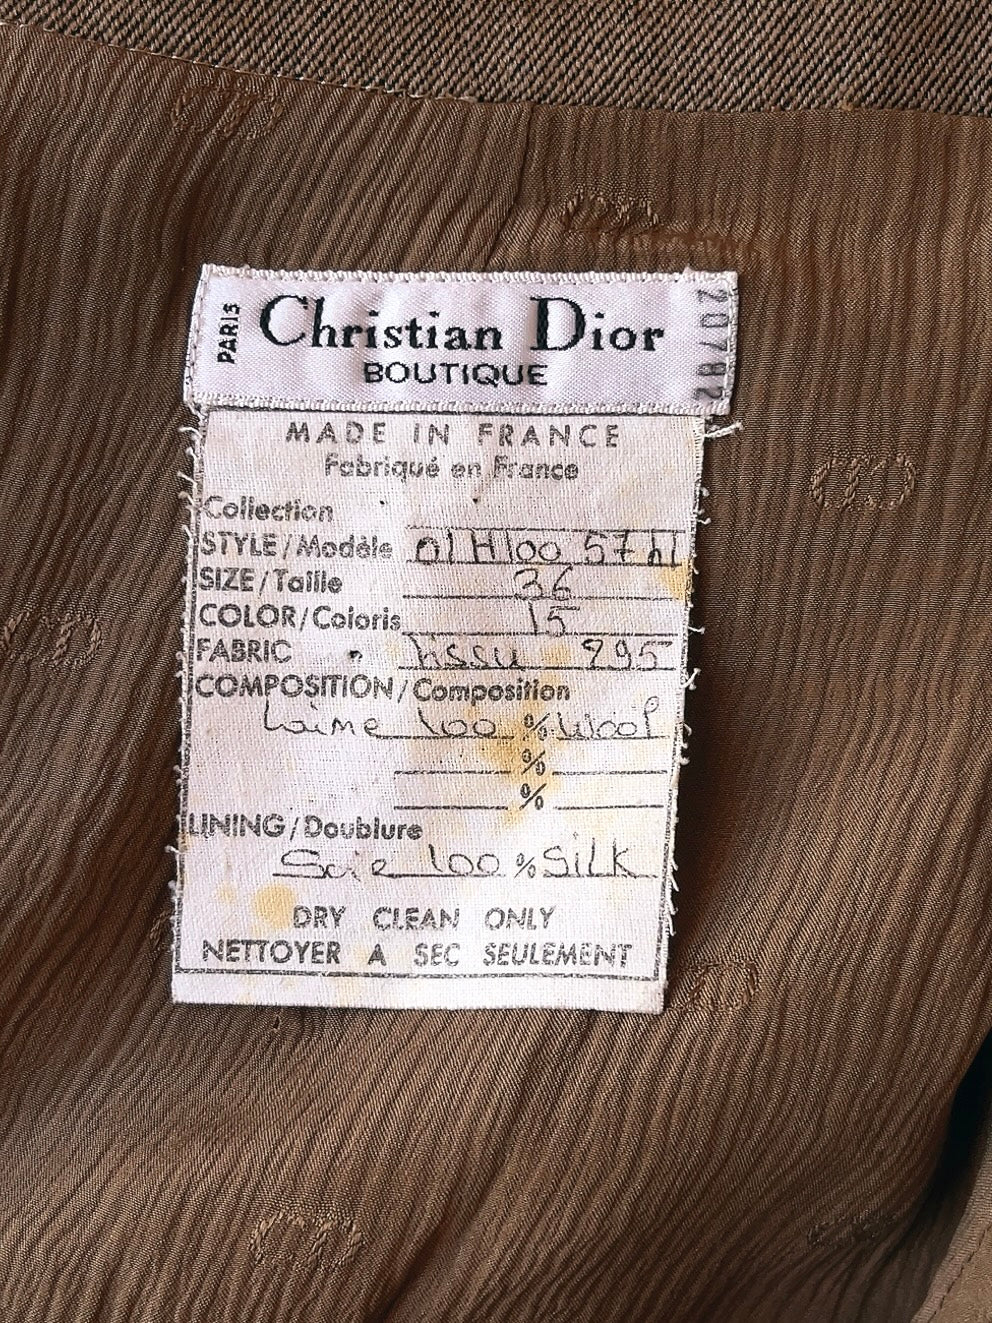 PARIS
Christian Dior
BOUTIQUE
20782
MADE IN FRANCE
Fabriqué en France
Collection
STYLE/Modèle
SIZE/Taille 36
COLOR/Coloris 15
FABRIC tissu 295
COMPOSITION/Composition
Laine 100 % Wool
%
%
LINING/Doublure
Soie 100 % SiLK
DRY CLEAN ONLY
NETTOYER A SEC SEULEMENT